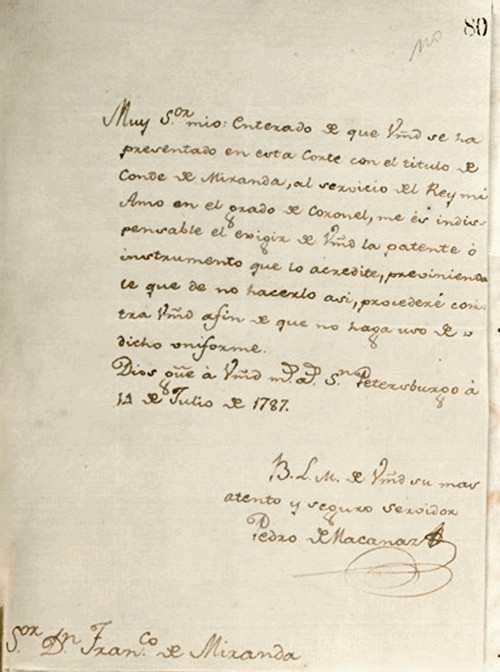 No
80
Muy S.or mio: Enterado de que Vmd se ha
presentado en esta Corte con el titulo de
Conde de Miranda, al servicio del Rey mi
Amo en el grado de Coronel, me és indis-
pensable el exigir de Vmd la patente ò
instrumento que lo acredite, previniendo
le que de no hacerlo asi, procederé con-
tra Vmd afin de que no haga uso de
dicho uniforme.
Dios gue à Vmd m.s a.s S.n Petersburgo à
14 de Julio de 1787.
B. L. M. de Vmd su mas
atento y seguro servidor
Pedro de Macanaz
S.or D.n Fran.co de Miranda